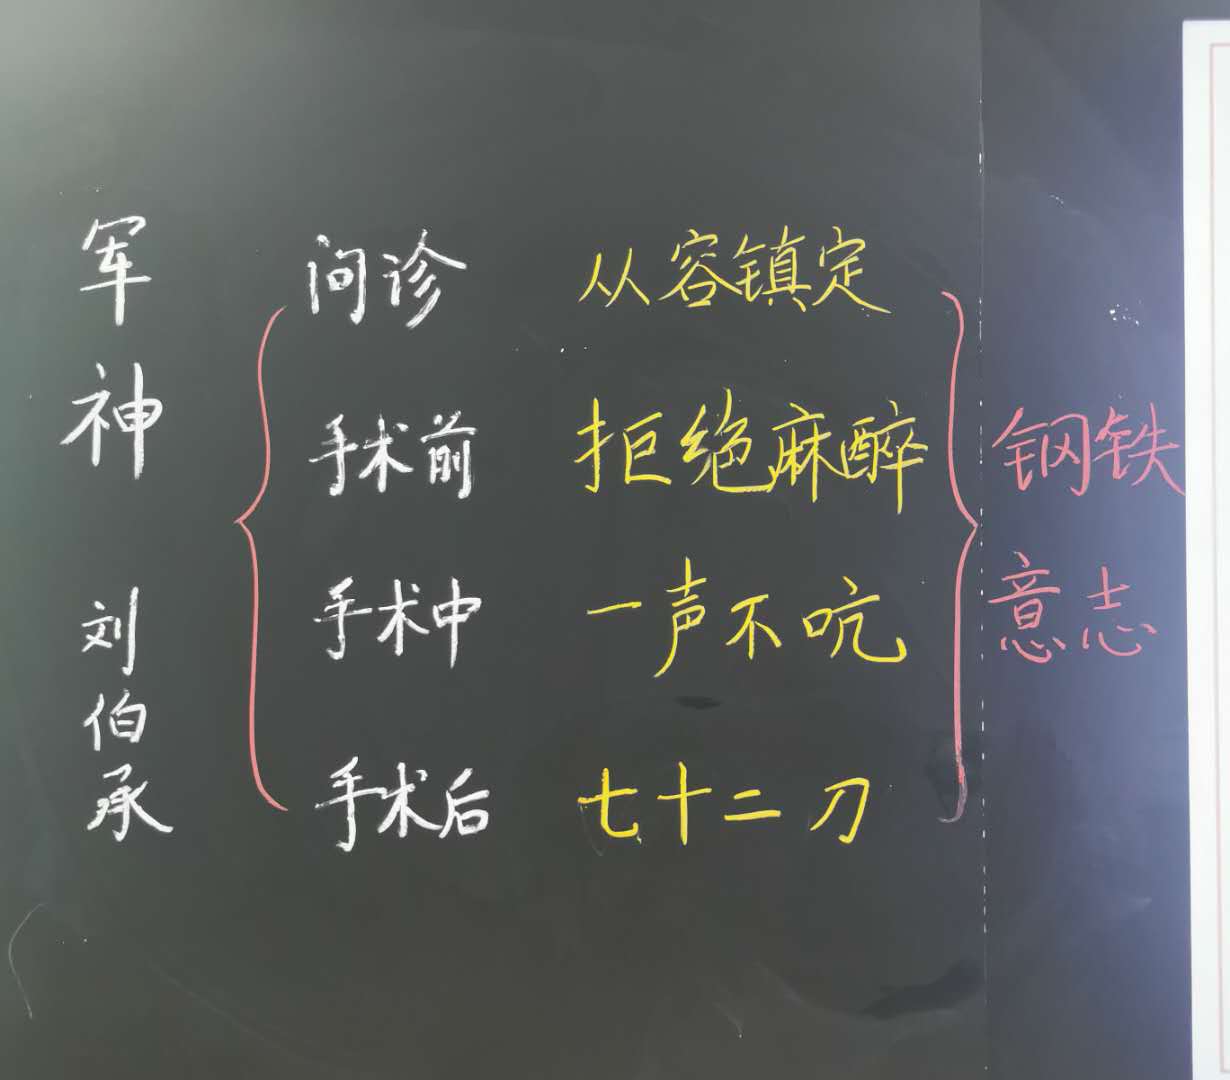 军神
刘伯承
问诊 从容镇定
手术前 拒绝麻醉
手术中 一声不吭
手术后 七十二刀
钢铁
意志